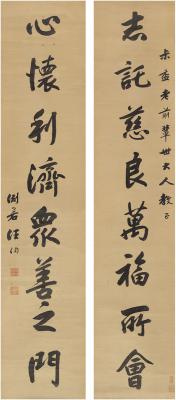 志託慈良萬福所會
益老前輩世大人教正
心懷利濟眾善之門
汪洵